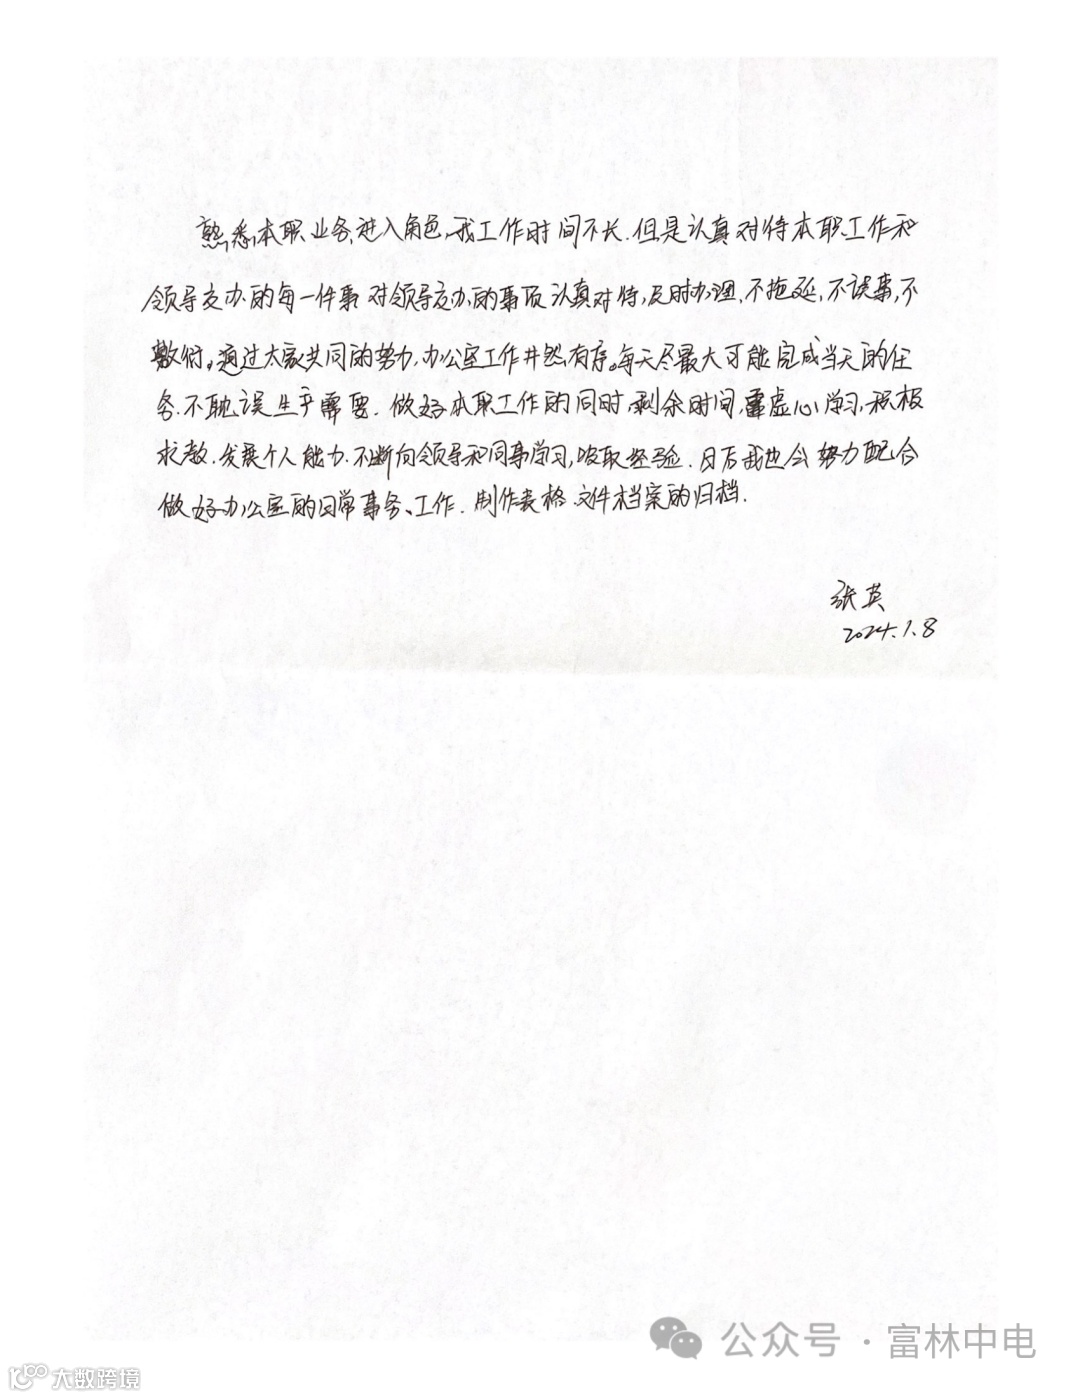 熟悉本职业务,进入角色,我工作时间不长.但是认真对待本职工作和
领导交办的每一件事 对领导交办的事项认真对待,及时办理,不拖延,不误事,不
敷衍。通过大家共同的努力,办公室工作井然有序。每天尽最大可能完成当天的任
务.不耽误生产需要.做好本职工作的同时,剩余时间,虚心学习,积极
求教.发展个人能力.不断向领导和同事学习,吸取经验.日后我也会努力配合
做好办公室的日常事务、工作.制作表格.文件档案的归档.
张英
2024.1.8
公众号·富林中电
大数跨境